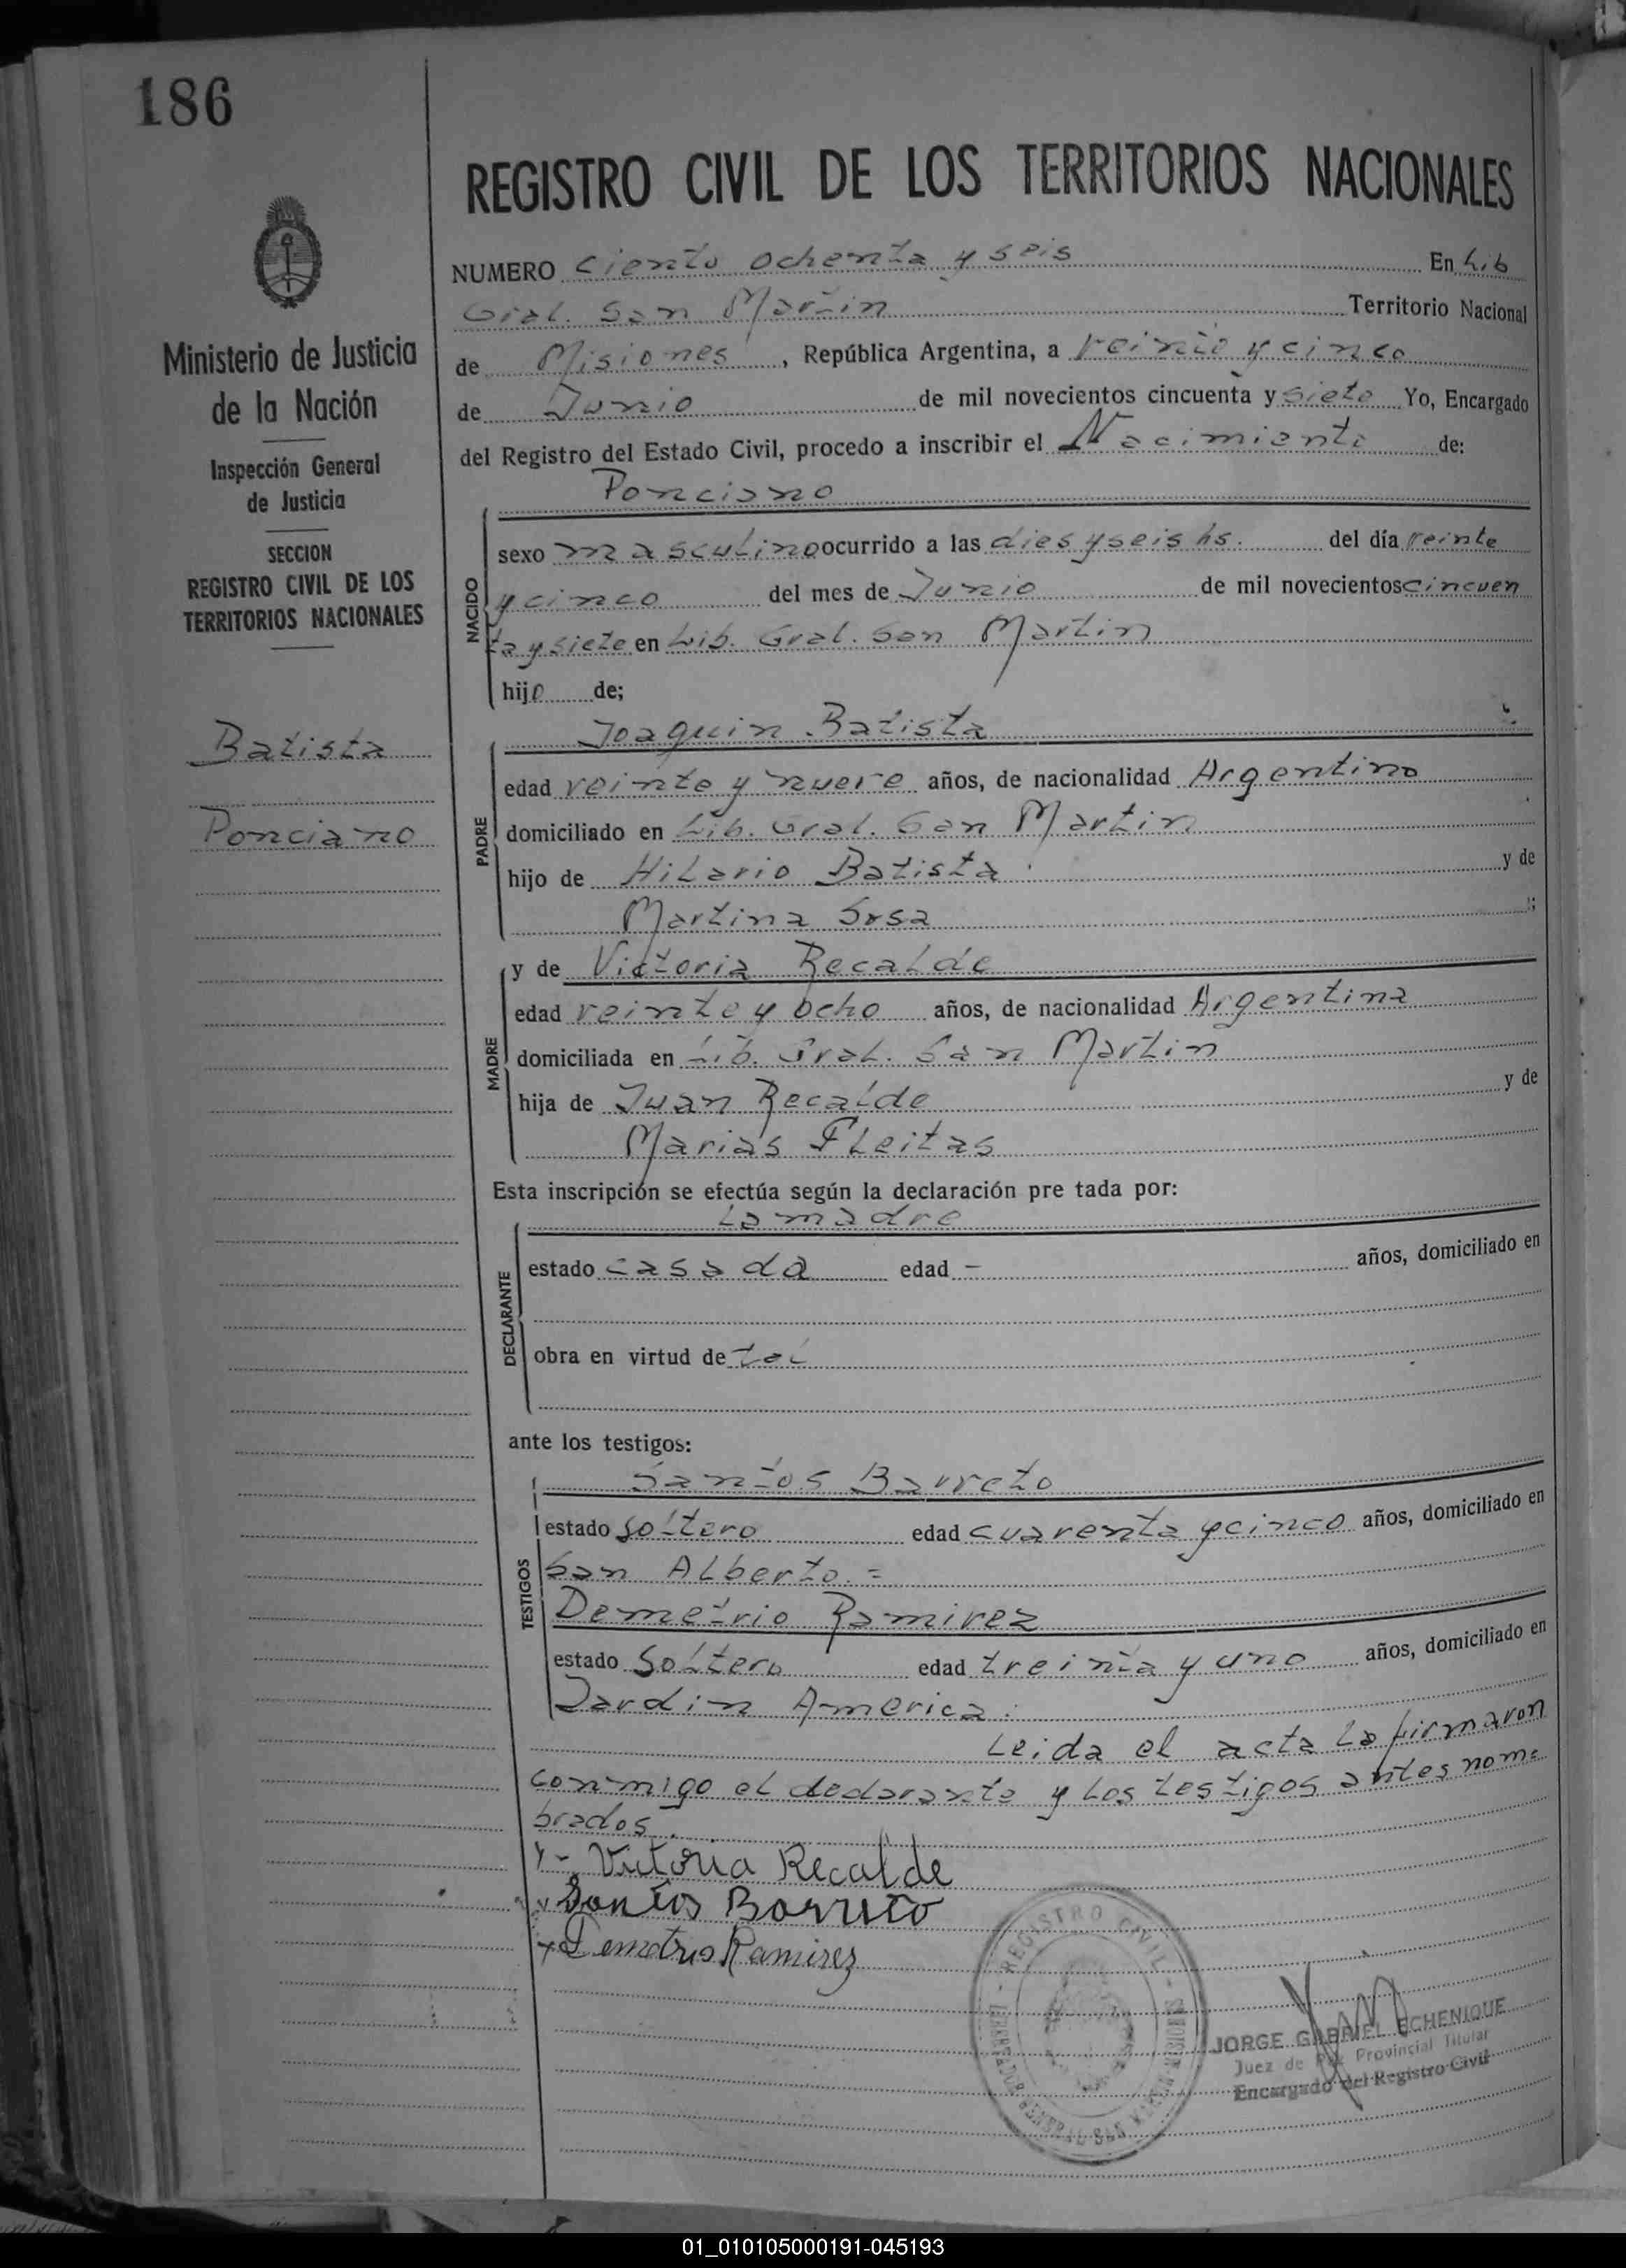 186
REGISTRO CIVIL DE LOS TERRITORIOS NACIONALES
Ministerio de Justicia
de la Nación
Inspección General
de Justicia
SECCION
REGISTRO CIVIL DE LOS
TERRITORIOS NACIONALES
Batista
Ponciano
NUMERO Ciento ochenta y seis En Lib
Gral. San Martin Territorio Nacional
de Misiones, República Argentina, a veinte y cinco
de Junio de mil novecientos cincuenta y siete Yo, Encargado
del Registro del Estado Civil, procedo a inscribir el Nacimiento de:
Ponciano
NACIDO
sexo masculino ocurrido a las dies y seis hs. del día veinte
y cinco del mes de Junio de mil novecientos cincuen
ta y siete en Lib. Gral. San Martin
hijo de;
Joaquin Batista
PADRE
edad veinte y nueve años, de nacionalidad Argentino
domiciliado en Lib. Gral. San Martin
hijo de Hilario Batista y de
Martina Sosa
MADRE
y de Victoria Recalde
edad veinte y ocho años, de nacionalidad Argentina
domiciliada en Lib. Gral. San Martin
hija de Juan Recalde y de
Marias Fleitas
Esta inscripción se efectúa según la declaración pre tada por:
La madre
DECLARANTE
estado casada edad - años, domiciliado en
obra en virtud de tal
ante los testigos:
Santos Barreto
TESTIGOS
estado soltero edad cuarenta y cinco años, domiciliado en
San Alberto.=
Demetrio Ramirez
estado Soltero edad treinta y uno años, domiciliado en
Jardin America.
Leida el acta la firmaron
conmigo el declarante y los testigos antes nom=
brados.
Victoria Recalde
Santos Barreto
Demetrio Ramirez
REGISTRO CIVIL - MISIONES
LIBERTADOR GENERAL SAN MARTIN
JORGE GABRIEL ECHENIQUE
Juez de Paz Provincial Titular
Encargado del Registro Civil
01_010105000191-045193